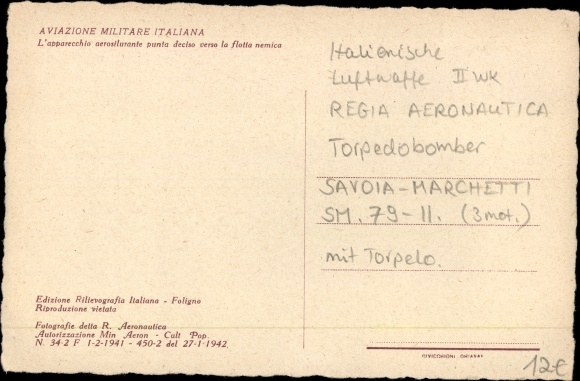 AVIAZIONE MILITARE ITALIANA
L'apparecchio aerosilurante punta deciso verso la flotta nemica
Italienische
Luftwaffe II WK
REGIA AERONAUTICA
Torpedobomber
SAVOIA-MARCHETTI
SM. 79-II. (3mot.)
mit Torpelo.
Edizione Rilievografia Italiana - Foligno
Riproduzione vietata
Fotografie della R. Aeronautica
Autorizzazione Min Aeron - Cult Pop.
N. 34-2 F 1-2-1941 - 450-2 del 27-1-1942.
12€